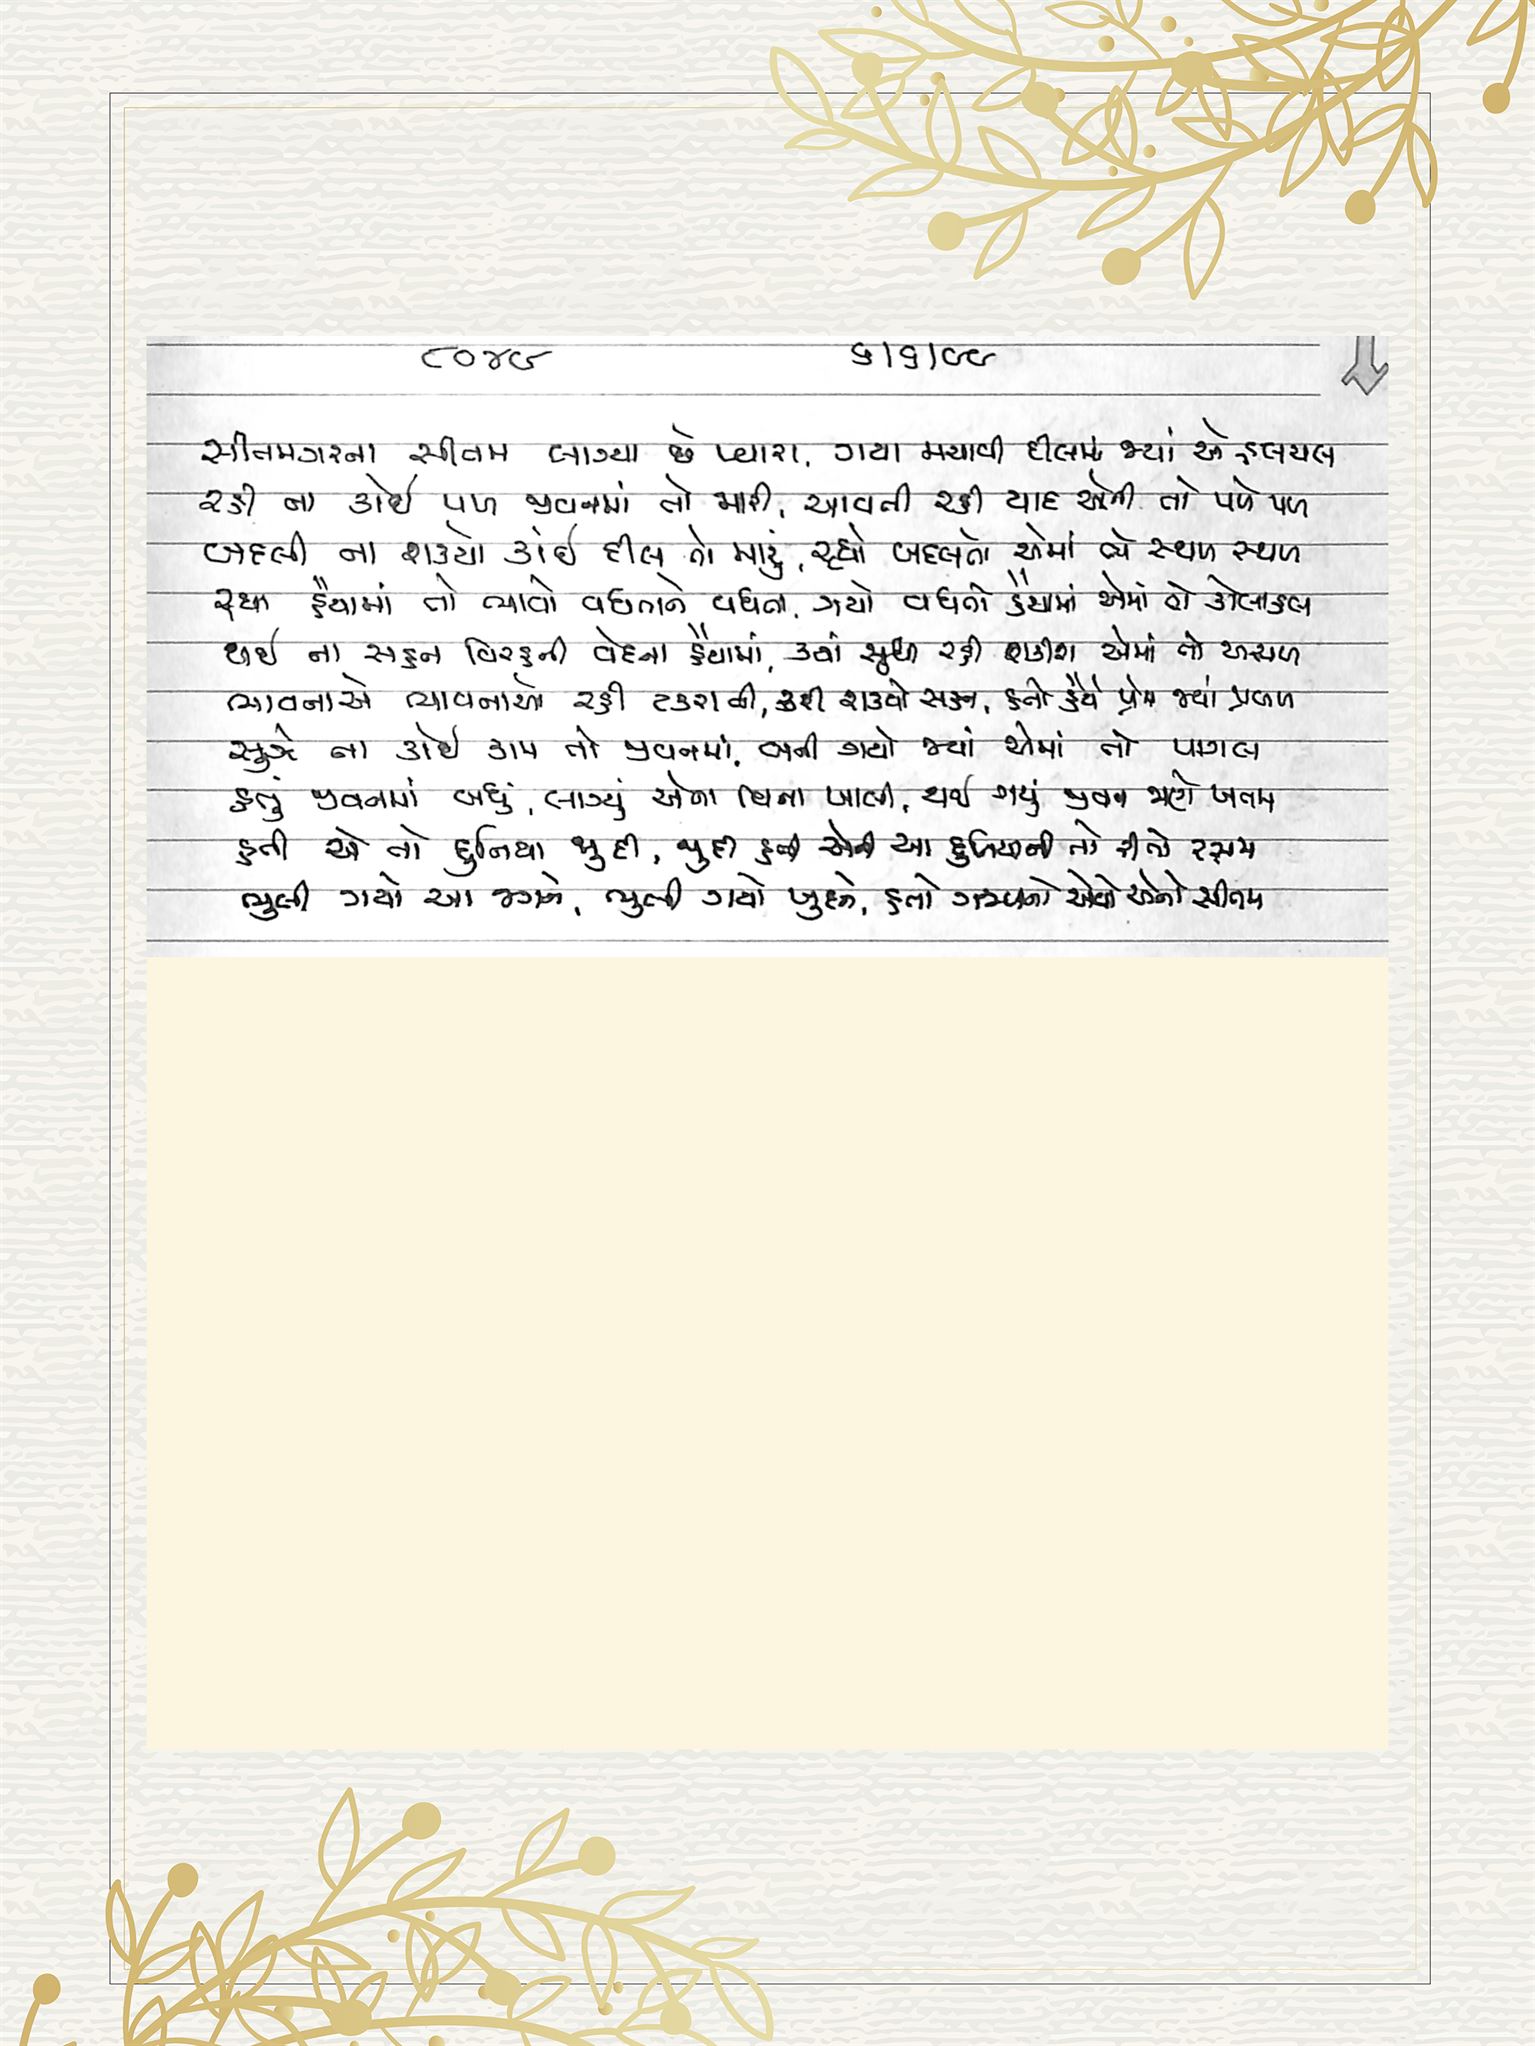 ૮૦૪૯ ૬।૬।૯૯
સીતમગરના સીતમ લાગ્યા છે પ્યારા, ગયા મચાવી દીલમાં જ્યાં એ હલચલ
રહી ના કોઈ પળ જીવનમાં તો મારી, આવતી રહી યાદ એની તો પળે પળ
બદલી ના શક્યો કાંઈ દીલ તો મારું, રહ્યો બદલતો એમાં વ્યે સ્થળ સ્થળ
રહ્યા હૈયામાં તો ભાવો વધતાને વધતા, ગયો વધતો હૈયામાં એમાં તો કોલાહલ
થાઈ ના સહન વિરહની વેદના હૈયામાં, ક્યાં સુધી રહી શકીશ એમાં તો અચળ
ભાવનાએ ભાવનાઓ રહી ટકરાતી, કરી શક્યો સહન, હતો હૈયે પ્રેમ જ્યાં પ્રબળ
સુઝે ના કોઈ કામ તો જીવનમાં, બની ગયો જ્યાં એમાં તો પાગલ
હતું જીવનમાં બધું, લાગ્યું એના વિના ખાલી, થઈ ગયું જીવન જાણે ખતમ
હતી એ તો દુનિયા જુદી, જુદી હતી એની આ દુનિયાની તો રીતો રસમ
ભુલી ગયો આ જગને, ભુલી ગયો ખુદને, હતો ગજબનો એવો એનો સીતમ